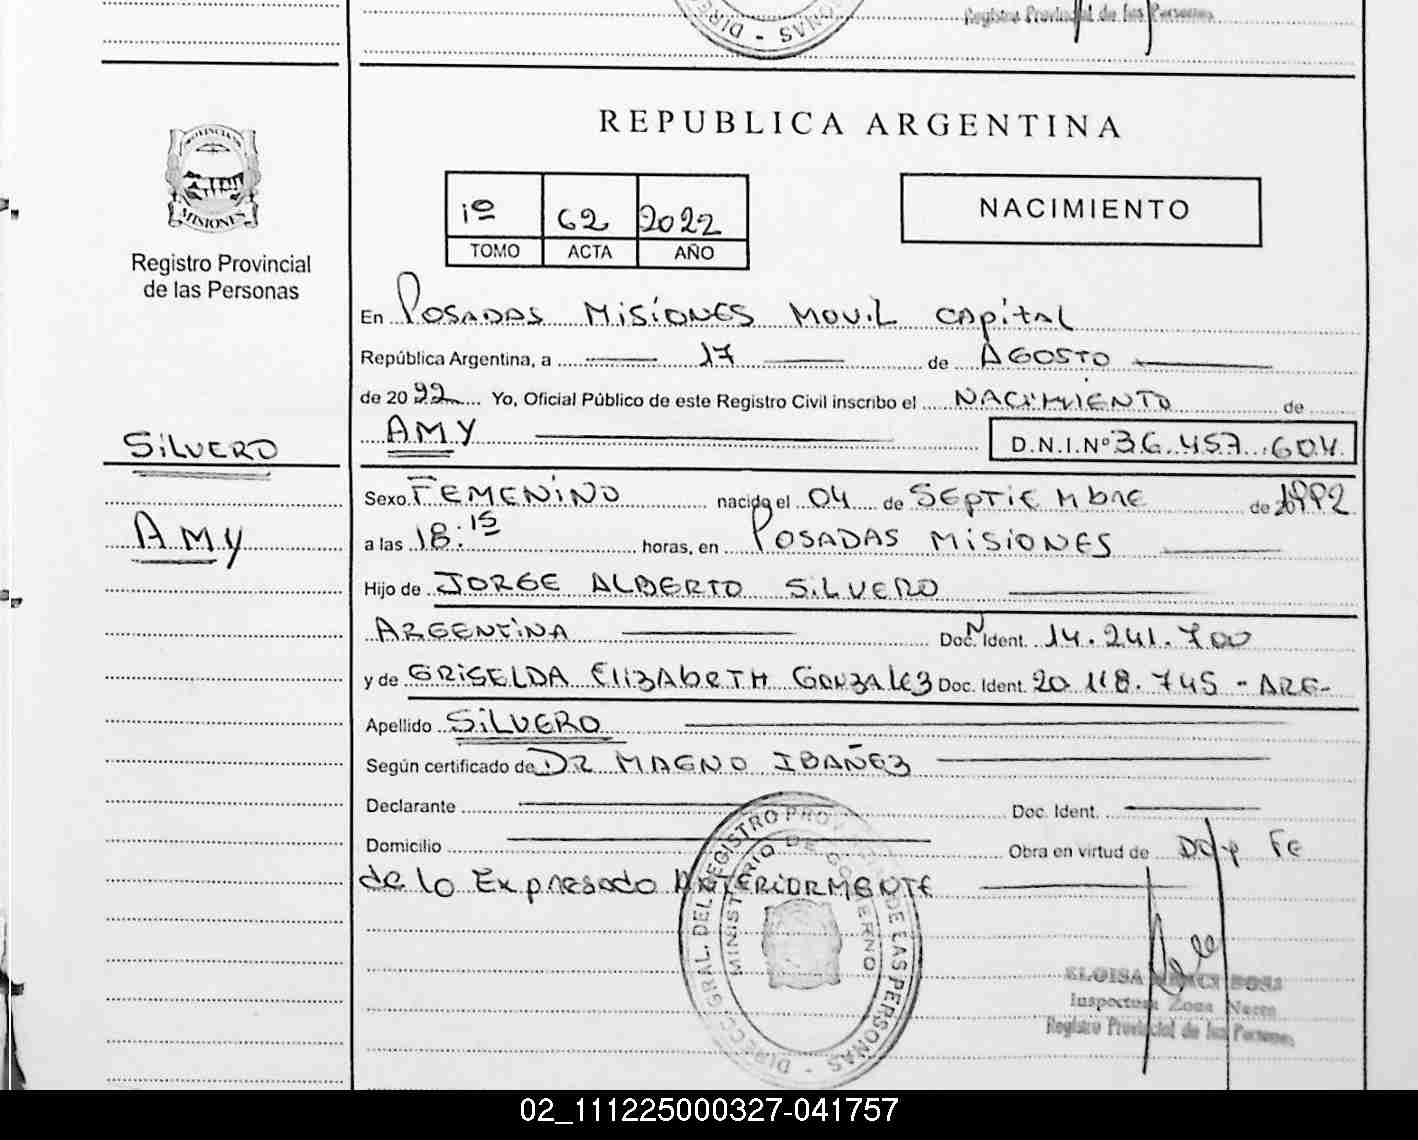 Registro Provincial de las Personas
DIREC
SONAS -
REPUBLICA ARGENTINA
PROVINCIA DE
MISIONES
Registro Provincial
de las Personas
1º 62 2022
TOMO ACTA AÑO
NACIMIENTO
En POSADAS MISIONES MOVIL CAPITAL
República Argentina, a 17 de AGOSTO
de 2022 Yo, Oficial Público de este Registro Civil inscribo el NACIMIENTO de
AMY D.N.I.Nº 36.457.604
SILVERO
AMY
Sexo FEMENINO nacido el 04 de SEPTIEMBRE de 1992
a las 18:15 horas, en POSADAS MISIONES
Hijo de JORGE ALBERTO SILVERO
ARGENTINA Doc. Ident. 14.241.700
y de GRISELDA ELIZABETH GONZALEZ Doc. Ident. 20.118.745 - ARG-
Apellido SILVERO
Según certificado de DR MAGNO IBAÑEZ
Declarante Doc. Ident.
Domicilio Obra en virtud de DOY FE
de lo Expresado ANTERIORMENTE
DIRECC. GRAL. DEL REGISTRO PROVINCIAL DE LAS PERSONAS -
MINISTERIO DE GOBIERNO
ELOISA SOSA
Inspectora Zona
Registro Provincial de las Personas
02_111225000327-041757